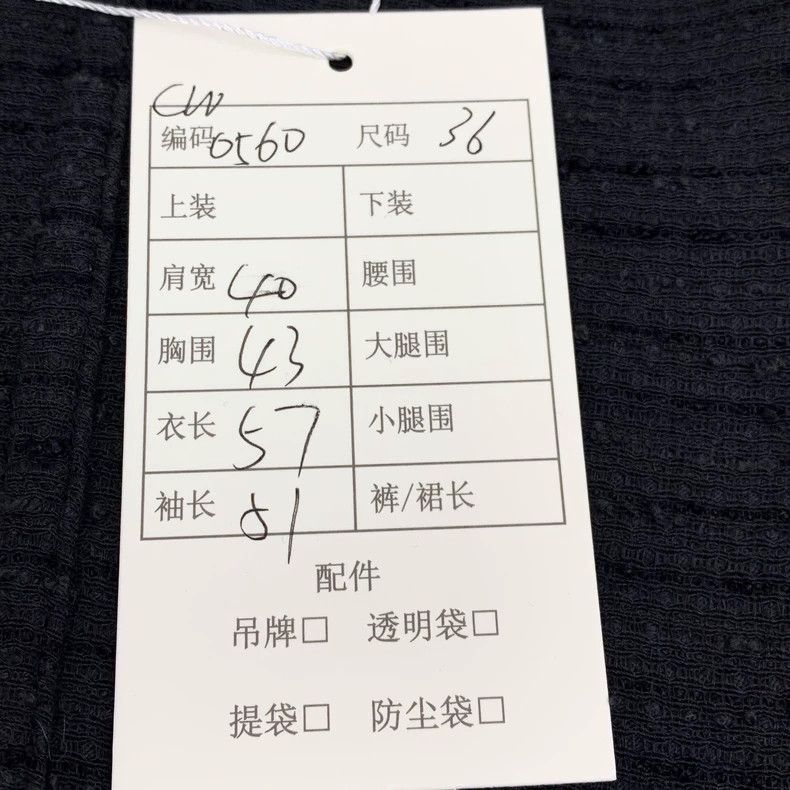 CW
编码 0560 尺码 36
上装 下装
肩宽 40 腰围
胸围 43 大腿围
衣长 57 小腿围
袖长 裤/裙长
配件
吊牌□ 透明袋□
提袋□ 防尘袋□